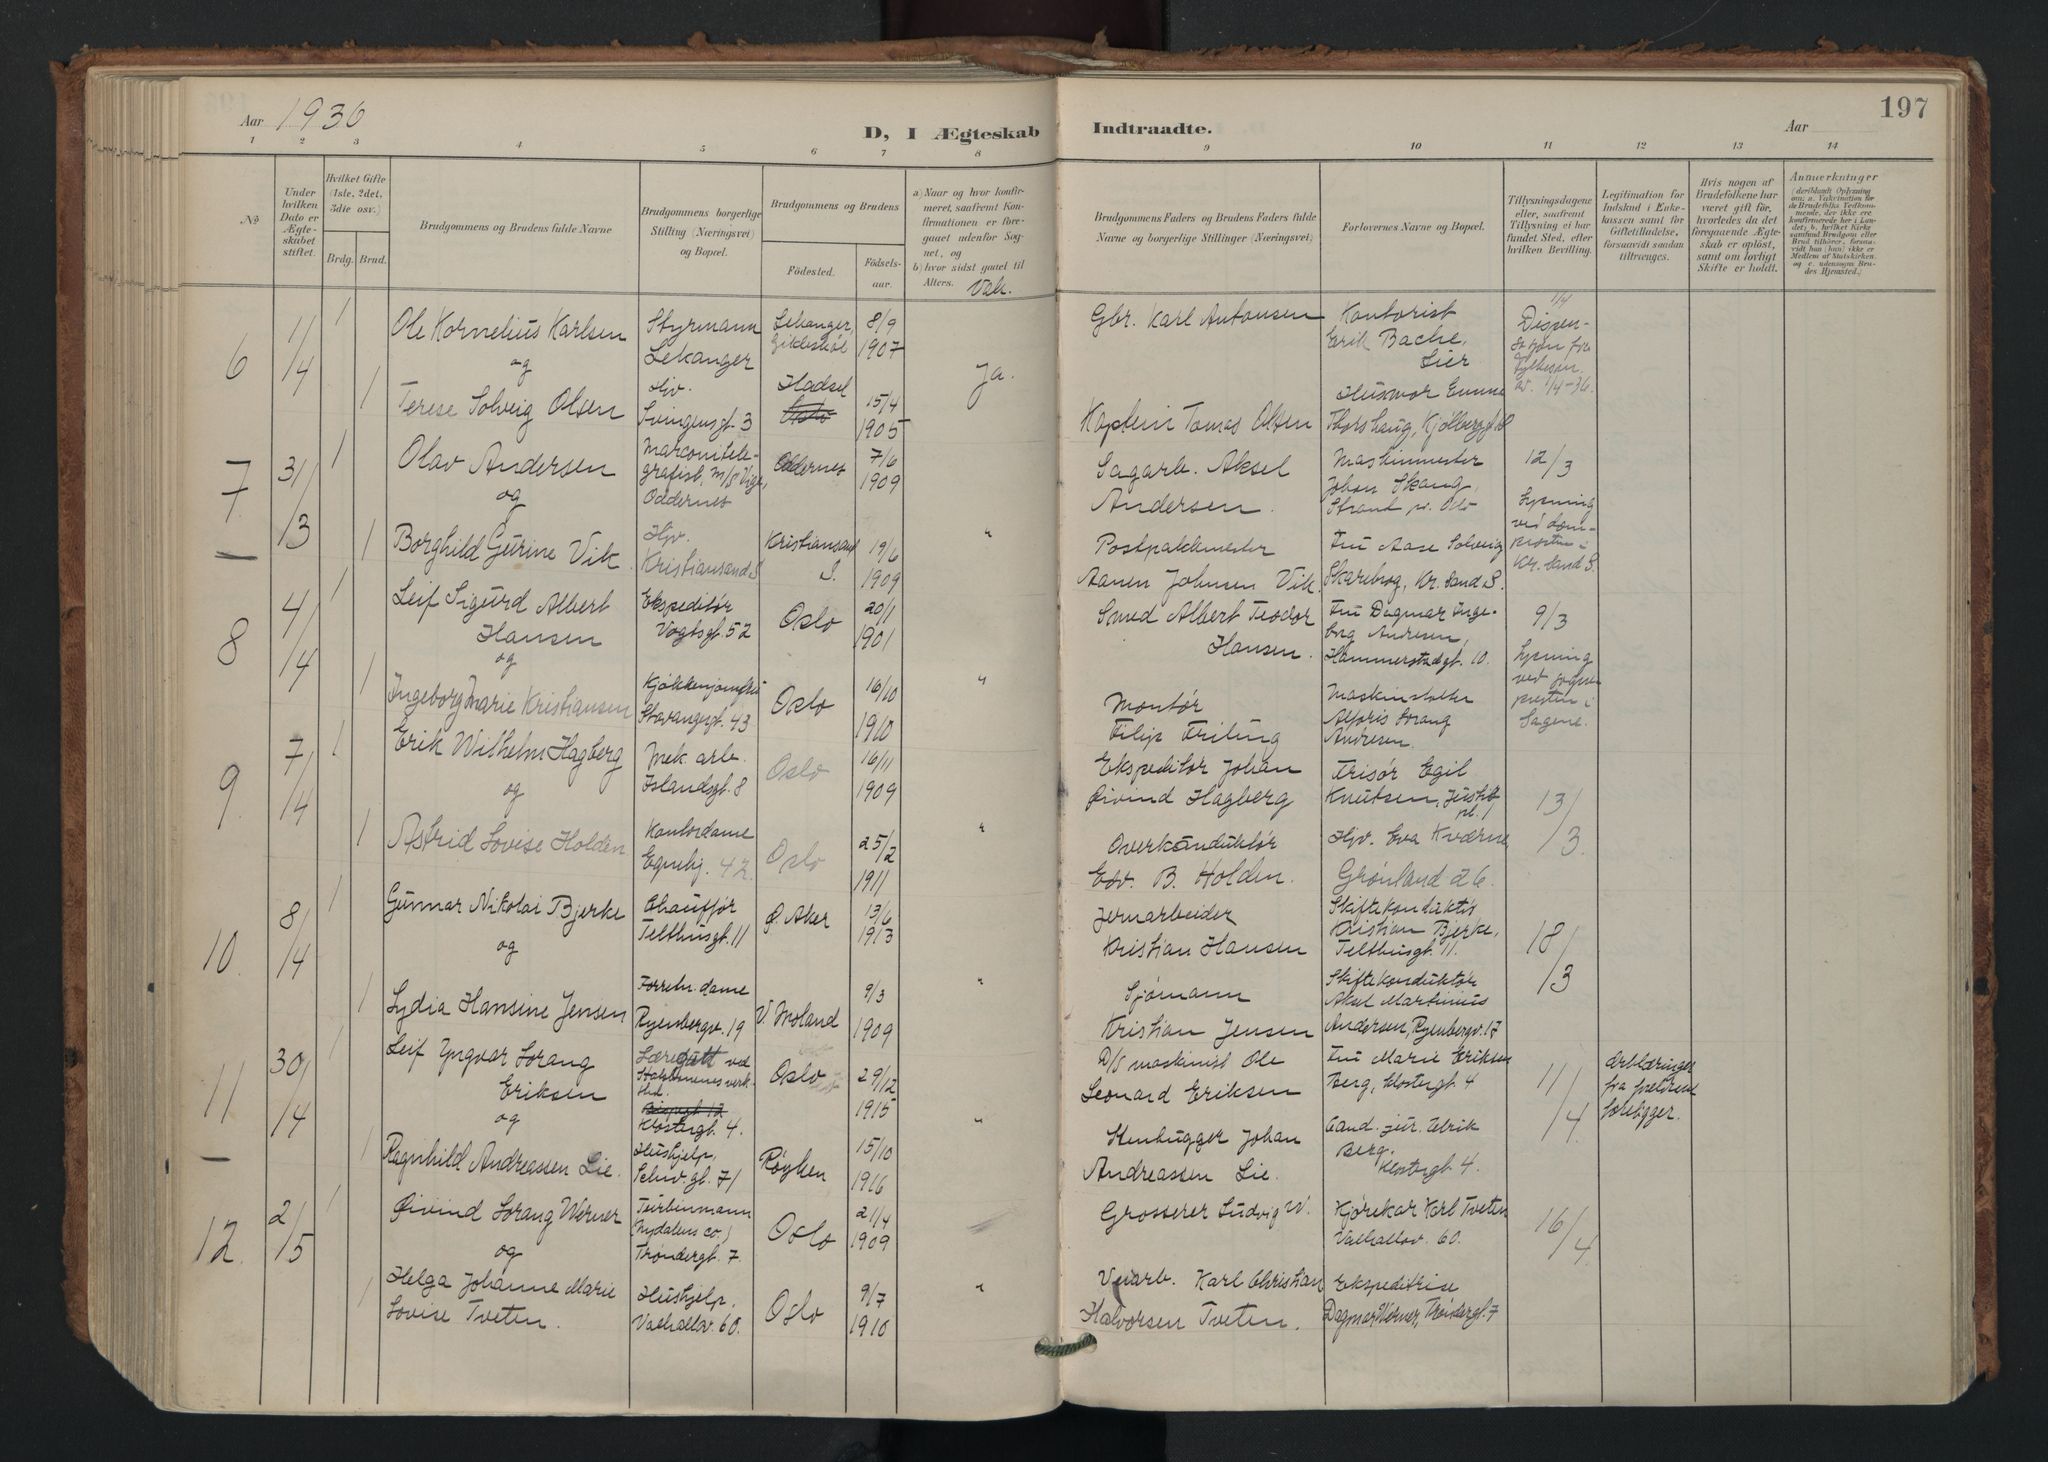 Aar 1936
D, I Ægteskab Indtraadte.
Aar
197
1 2 3 4 5 6 7 8 9 10 11 12 13 14
No
Under hvilken Dato er Ægteskabet stiftet.
Hvilket Gifte (1ste, 2det, 3die osv.)
Brdg. Brud.
Brudgommens og Brudens fulde Navne
Brudgommens borgerlige Stilling (Næringsvei) og Bopæl.
Brudgommens og Brudens
Födested. Födselsaar.
a) Naar og hvor konfirmeret, saafremt Konfirmationen er foregaaet udenfor Sognet, og
b) hvor sidst gaaet til Alters. Vak.
Brudgommens Faders og Brudens Faders fulde Navne og borgerlige Stillinger (Næringsvei)
Forlovernes Navne og Bopæl.
Tillysningsdagene eller, saafremt Tillysning ei har fundet Sted, efter hvilken Bevilling.
Legitimation for Indskud i Enkekassen samt for Giftetilladelse, forsaavidt saadan tiltrænges.
Hvis nogen af Brudefolkene har været gift før, hvorledes da det foregaaende Ægteskab er oplöst, samt om lovligt Skifte er holdt.
Anmerkninger
6 1/4 1 Ole Kornelius Karlsen
og
1 Terese Solveig Olsen
Styrmann
Lekanger
Hjv.
Svingensgt. 3
Lekanger, Gildeskål 8/9 1907
Hadsel Oslo 15/4 1905
Ja.
Gbr. Karl Antonsen
Kaptein Tomas Olsen
Kontorist
Erik Bache,
Lier
Husmor Emma
Thorshaug,
1/4
Dispensasjon fra
Fylkesm.
av 1/4-36.
7. 31/3 1 Olav Andersen
og
1 Borghild Gurine Vik
Marconitelegrafist, m/s
Oddernes
Hjv.
Kristiansand S
Oddernes 7/6 1909
Kristiansand S. 19/6 1909
"
Sagarb. Aksel
Andersen.
Postpakkmester
Aanen Johnsen Vik
Maskinmester
Johan Skaug,
Strand pr. Oslo
Fru Aase Solveig
Skarebrog, Kr. sand S.
12/3
Lysning
ved domprosten i
Kr. sand S.
8 4/4 1 Leif Sigurd Albert
Hansen
og
1 Ingeborg Marie Kristiansen
Ekspeditør
Vogtsgt. 52
Kjøkkenjomfru
Stavangergt. 43
Oslo 20/1 1901
Oslo 16/10 1910
"
Smed Albert Teodor
Hansen.
Montør
Filip Friling
Fru Dagmar Ingeborg Andresen,
Hammerstadgt. 10.
Maskinist
Sorang
Andresen.
9/3
Lysning
ved sognepresten i
Sagene.
9. 7/4 1 Erik Wilhelm Hagberg
og
1 Astrid Lovise Holden
Mek. arb.
Islandsgt. 8
Kontordame
Egnehj. 42.
Oslo 16/11 1909
Oslo 25/2 1911
"
Ekspeditør Johan
Øivind Hagberg
Overkonduktør
Edv. B. Holden.
Frisør Egil
Knutsen,
Hjv. Eva Kværne,
Grønland 26.
13/3
10. 8/4 1 Gunnar Nikolai Bjerke
og
1 Lydia Hansine Jensen
Chauffør
Telthusgt. 11
Forretn. dame
Ryenbergv. 19
Ø. Aker 13/6 1913
V. Moland 9/3 1909
"
Jernarbeider
Kristian Hansen
Sjømann
Kristian Jensen
Skiftekonduktør
Kristian Bjerke,
Telthusgt. 11.
Skiftekonduktør
Aksel Martinius
Andersen, Ryenbergv. 17
18/3
11 30/4 1 Leif Yngvar Sorang
Eriksen
og
1 Ragnhild Andreassen Lie.
Læregutt ved
Statsbanenes verksted.
Klostergt. 4.
Hushjelp,
Schw. gt. 71
Oslo 29/12 1915
Røyken 15/10 1916
"
D/s maskinist Ole
Leonard Eriksen
Stenhugger Johan
Andreassen Lie.
Fru Marie Eriksen
Berg, Klostergt. 4
Cand. jur. Ulrik
Berg.
Klostergt. 4.
11/4
Erklæringer
fra foreldrene
foreligger.
12. 2/5 1 Øivind Sorang Werner
og
1 Helga Johanne Marie
Lovise Tveten.
Turbinmann
(Nydalens co.)
Trøndergt. 7
Hushjelp,
Valhallav. 60.
Oslo 21/4 1909
Oslo 9/7 1910
"
Grosserer Ludvig W.
Karl Christian
Halvorsen Tveten.
Kjørekar Karl Tveten
Valhallav. 60.
Ekspeditrise
Dagmar Werner, Trøndergt. 7
16/4